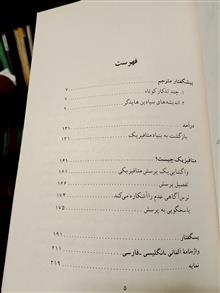 فهرست
پیشگفتار مترجم
۱. چند تذکار کوتاه ۷
۲. اندیشه‌های بنیادین هایدگر ۹
درآمد
بازگشت به بنیاد متافیزیک ۱۳۱
متافیزیک چیست؟ ۱۶۱
واگشایی یک پرسش متافیزیکی ۱۶۱
تفصیل پرسش ۱۶۶
ترس‌آگاهی عدم را آشکاره می‌کند. ۱۷۳
پاسخگویی به پرسش ۱۷۵
پسگفتار ۱۹۱
واژه‌نامهٔ آلمانی ـ انگلیسی ـ فارسی ۲۱۱
نمایه ۲۱۹
۵